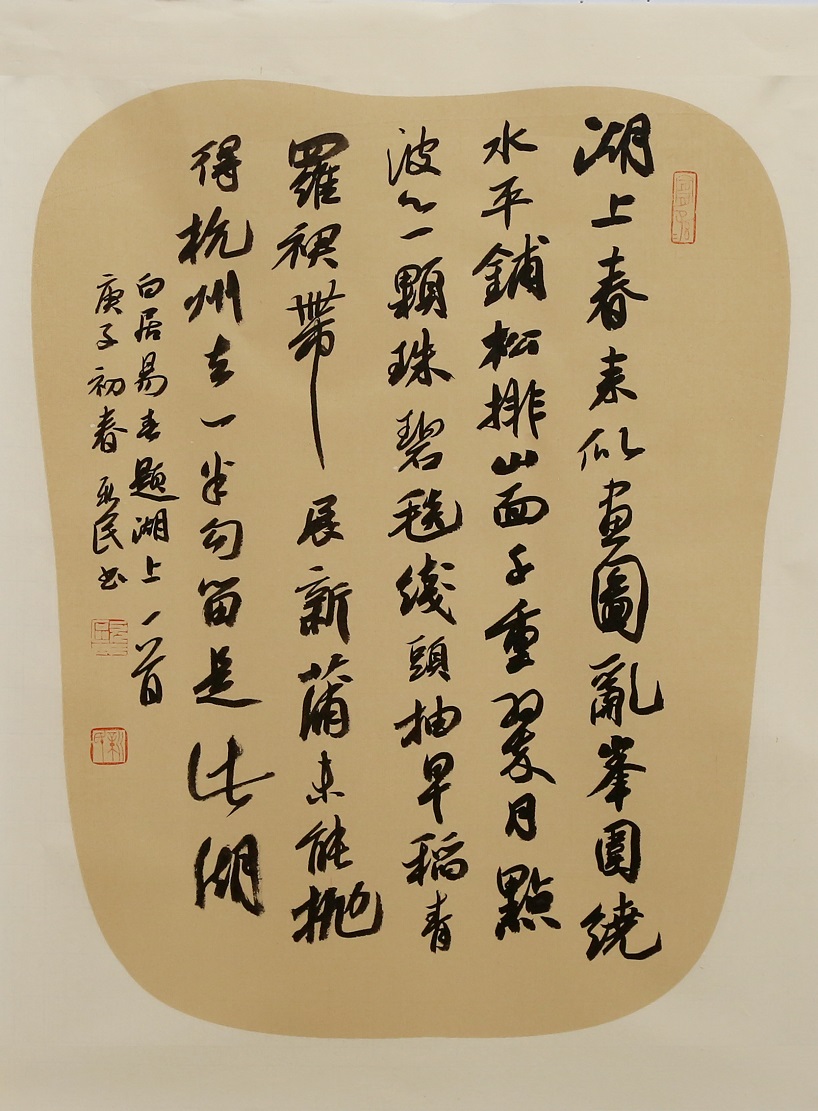 湖上春来似畫圖亂峯圍繞
水平鋪松排山面千重翠月點
波心一顆珠碧毯綫頭抽早稻青
羅裙帶展新蒲未能抛
得杭州去一半勾留是此湖
白居易春題湖上一首
庚子初春 民书